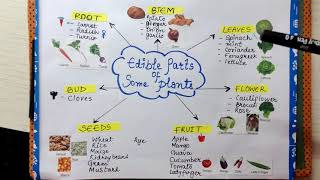 ROOT
Carrot
Radish
Turnip
STEM
Potato
Ginger
Onion
garlic
LEAVES
Spinach
Mint
Coriander
Fenugreek
Lettuce
Edible Parts
of
Some plants
BUD
Cloves
FLOWER
Cauliflower
Brocoli
Rose
SEEDS
Wheat
Rice
Maize
Kidneybeans
Gram
Mustard
Rye
FRUIT
Apple
Mango
Guava
Cucumber
Tomato
Ladyfinger